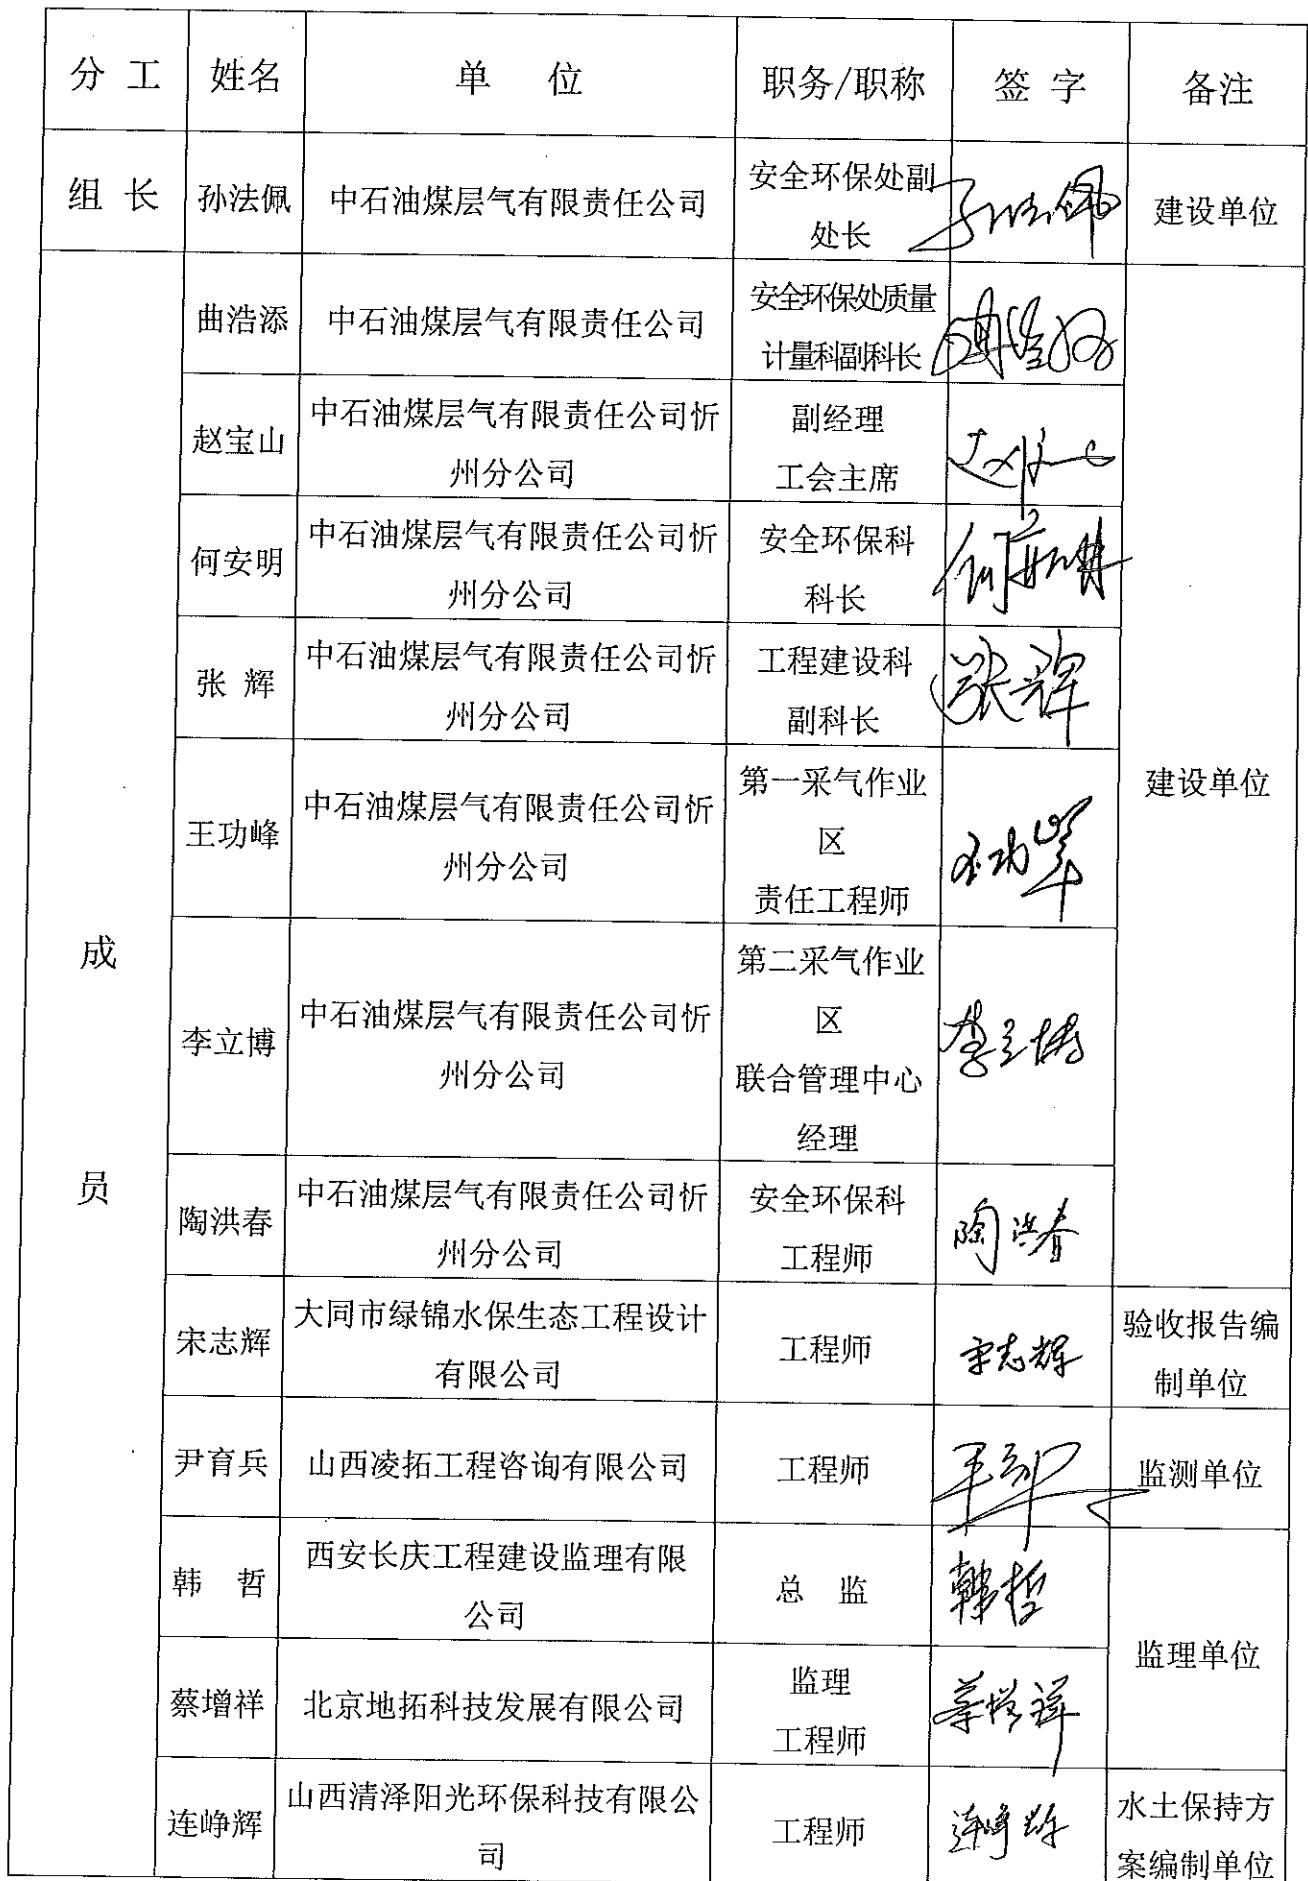 分 工 姓名 单 位 职务/职称 签 字 备注
组 长 孙法佩 中石油煤层气有限责任公司 安全环保处副
处长 孙法佩 建设单位
成
员
曲浩添 中石油煤层气有限责任公司 安全环保处质量
计量科副科长
赵宝山 中石油煤层气有限责任公司忻
州分公司 副经理
工会主席
何安明 中石油煤层气有限责任公司忻
州分公司 安全环保科
科长 何安明
张 辉 中石油煤层气有限责任公司忻
州分公司 工程建设科
副科长 张辉
建设单位
王功峰 中石油煤层气有限责任公司忻
州分公司 第一采气作业
区
责任工程师 王功峰
李立博 中石油煤层气有限责任公司忻
州分公司 第二采气作业
区
联合管理中心
经理 李立博
陶洪春 中石油煤层气有限责任公司忻
州分公司 安全环保科
工程师 陶洪春
宋志辉 大同市绿锦水保生态工程设计
有限公司 工程师 宋志辉 验收报告编
制单位
尹育兵 山西凌拓工程咨询有限公司 工程师 监测单位
韩 哲 西安长庆工程建设监理有限
公司 总 监 韩哲
监理单位
蔡增祥 北京地拓科技发展有限公司 监理
工程师 蔡增祥
连峥辉 山西清泽阳光环保科技有限公
司 工程师 连峥辉 水土保持方
案编制单位